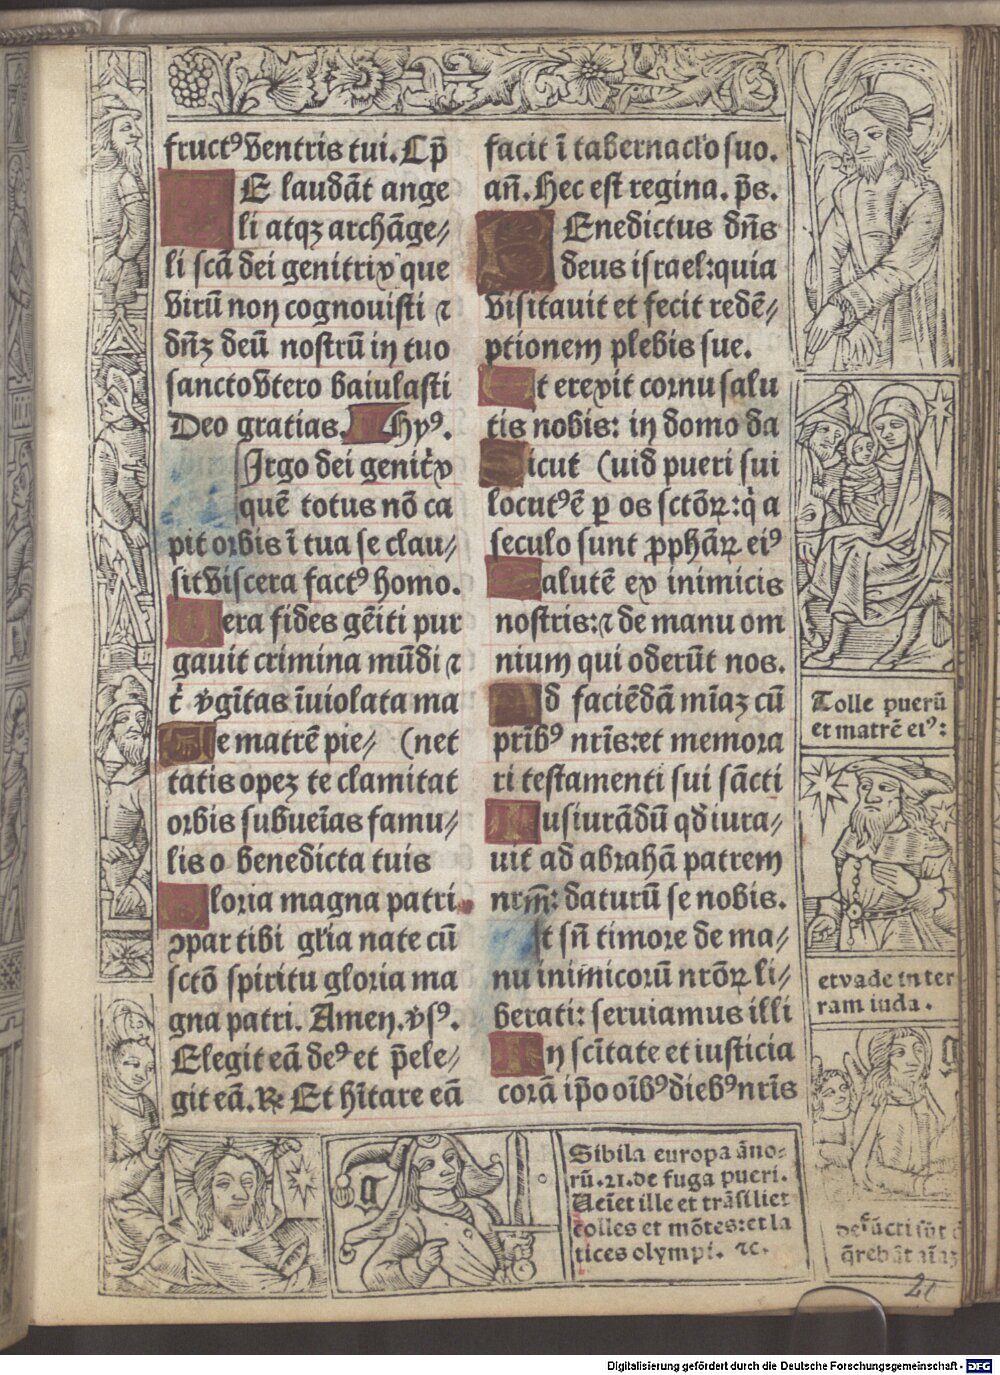 fructꝰ ventris tui. Cp̄
TE laudāt ange
li atqꝫ archāge⸗
li scā dei genitrix que
virū non cognouisti ⁊
dn̄ꝫ deū nostrū in tuo
sancto vtero baiulasti
Deo gratias. Hyꝰ.
Uirgo dei genitx̄
quē totus nō ca
pit orbis ī tua se clau⸗
sit viscera factꝰ homo.
Uera fides gēiti pur
gauit crimina mūdi ⁊
t̄ vgītas īuiolata ma
Te matrē pie⸗ (net
tatis opeꝫ te clamitat
orbis subueīas famu⸗
lis o benedicta tuis
Gloria magna patri
ꝯpar tibi gľia nate cū
sctō spiritu gloria ma
gna patri. Amen. v̄sꝰ.
Elegit eā deꝰ et p̄ele⸗
git eā. ℞ Et hītare eā
facit ī tabernaclo suo.
añ. Hec est regina. p̄s.
BEnedictus dn̄s
deus israel: quia
visitauit et fecit redē⸗
ptionem plebis sue.
Et erexit cornu salu
tis nobis: in domo da
Sicut (uid pueri sui
locutꝰ ē ꝑ os sctōꝝ: q̇ a
seculo sunt ꝓphāꝝ eiꝰ
Salutē ex inimicis
nostris: ⁊ de manu om
nium qui oderūt nos.
Ad faciēdam mīaꝫ cū
prībꝰ nr̄is: et memora
ri testamenti sui sācti
Iusiurādū qd̄ iura⸗
uit ad abrahā patrem
nr̄m̄: daturū se nobis.
Ut sn̄ timore de ma⸗
nu inimicorū nr̄oꝝ li⸗
berati: seruiamus illi
In scītate et iusticia
corā ip̄o oībꝰ diebꝰ nr̄is
Tolle puerū
et matrē eiꝰ:
et vade in ter
ram iuda.
g
defūcti sūt
q̄rebāt aīaꝫ
g
Sibila europa āno⸗
rū .21. de fuga pueri.
Ueīet ille et trāsiliet
colles et mōtes: et la
tices olympi. ⁊c.
Digitalisierung gefördert durch die Deutsche Forschungsgemeinschaft - DFG